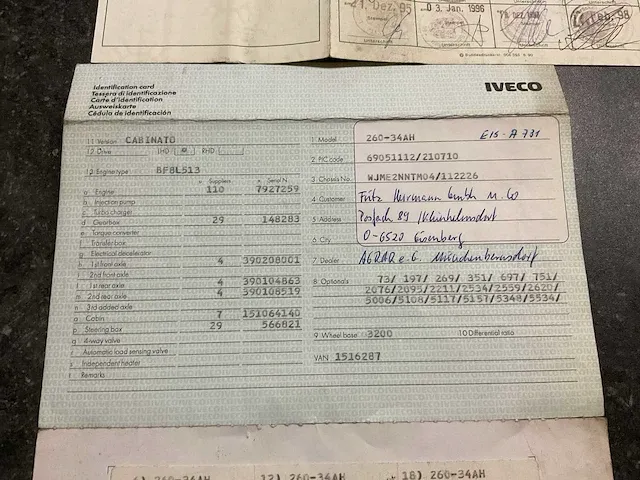 21. Dez. 95
03 Jan. 1996
Unterschrift
Identification card
Tessera di identificazione
Carte d'identification
Ausweiskarte
Cédula de identificación
IVECO
11 Version CABINATO
12 Drive LHD RHD
13 Engine type BF8L513
Suppliers Serial N.
a Engine 110 7927259
b Injection pump
c Turbo charger
d Gearbox 29 148283
e Torque converter
f Transfer box
g Electrical decelerator
h 1st front axle 4 390208001
i 2nd front axle
l 1st rear axle 4 390104863
m 2nd rear axle 4 390108519
n 3rd added axle
o Cabin 7 151064140
p Steering box 29 566821
q 4-way valve
r Automatic load sensing valve
s Independent heater
t Remarks
1 Model 260-34AH EIS-A 731
2 PIC code 69051112/210710
3 Chassis No. WJME2NNTM04/112226
4 Customer Fritz Herrmann GmbH u. Co
5 Address Postfach 89
6 City O-6520 Eisenberg
7 Dealer AGRAR e.G. Münchenbernsdorf
8 Optionals 73/ 197/ 269/ 351/ 697/ 751/
2076/2095/2211/2534/2559/2620/
5006/5108/5117/5157/5348/5534/
9 Wheel base 03200 10 Differential ratio
VAN 1516287
6) 260-34AH 12) 260-34AH 18) 260-34AH